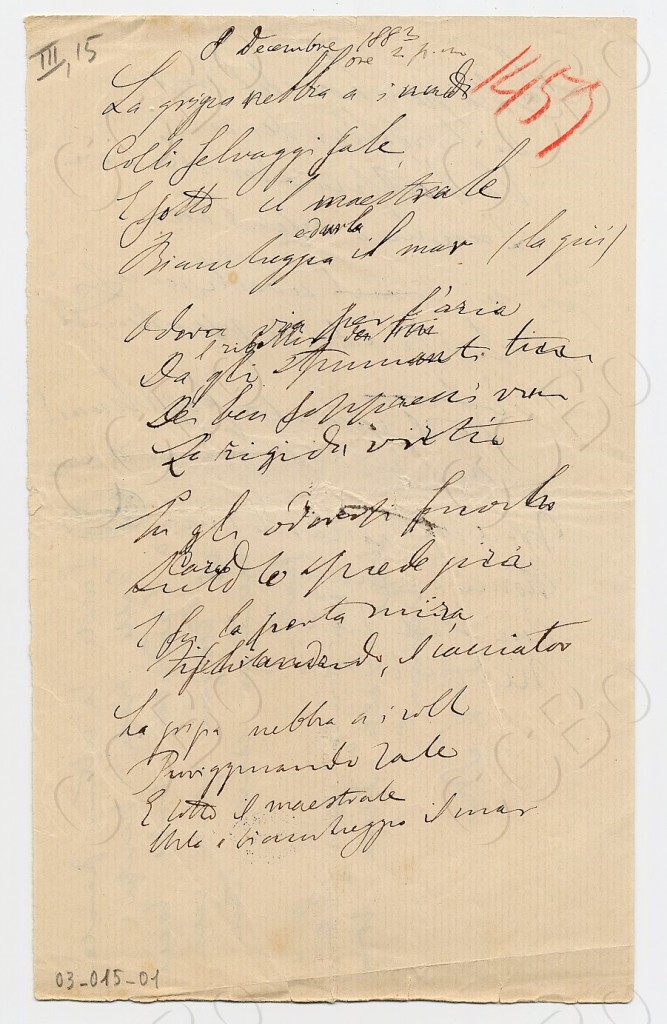 III, 15
8 Decembre 1883
ore 2 p. m
1453
La grigia nebbia a i nudi
Colli selvaggi sale,
E sotto il maestrale
ed urla
Biancheggia il mar (la giù)
Odora via per l'aria
ribollir dei tini
Da gli spumanti tini
De i ben soppressi vini
La rigida virtù
Su gli odorosi
lo spiede gira
E su la porta mira
il cacciator
La grigia nebbia a i colli
Pioviginando sale
E sotto il maestrale
Urla e biancheggia il mar
03-015-01